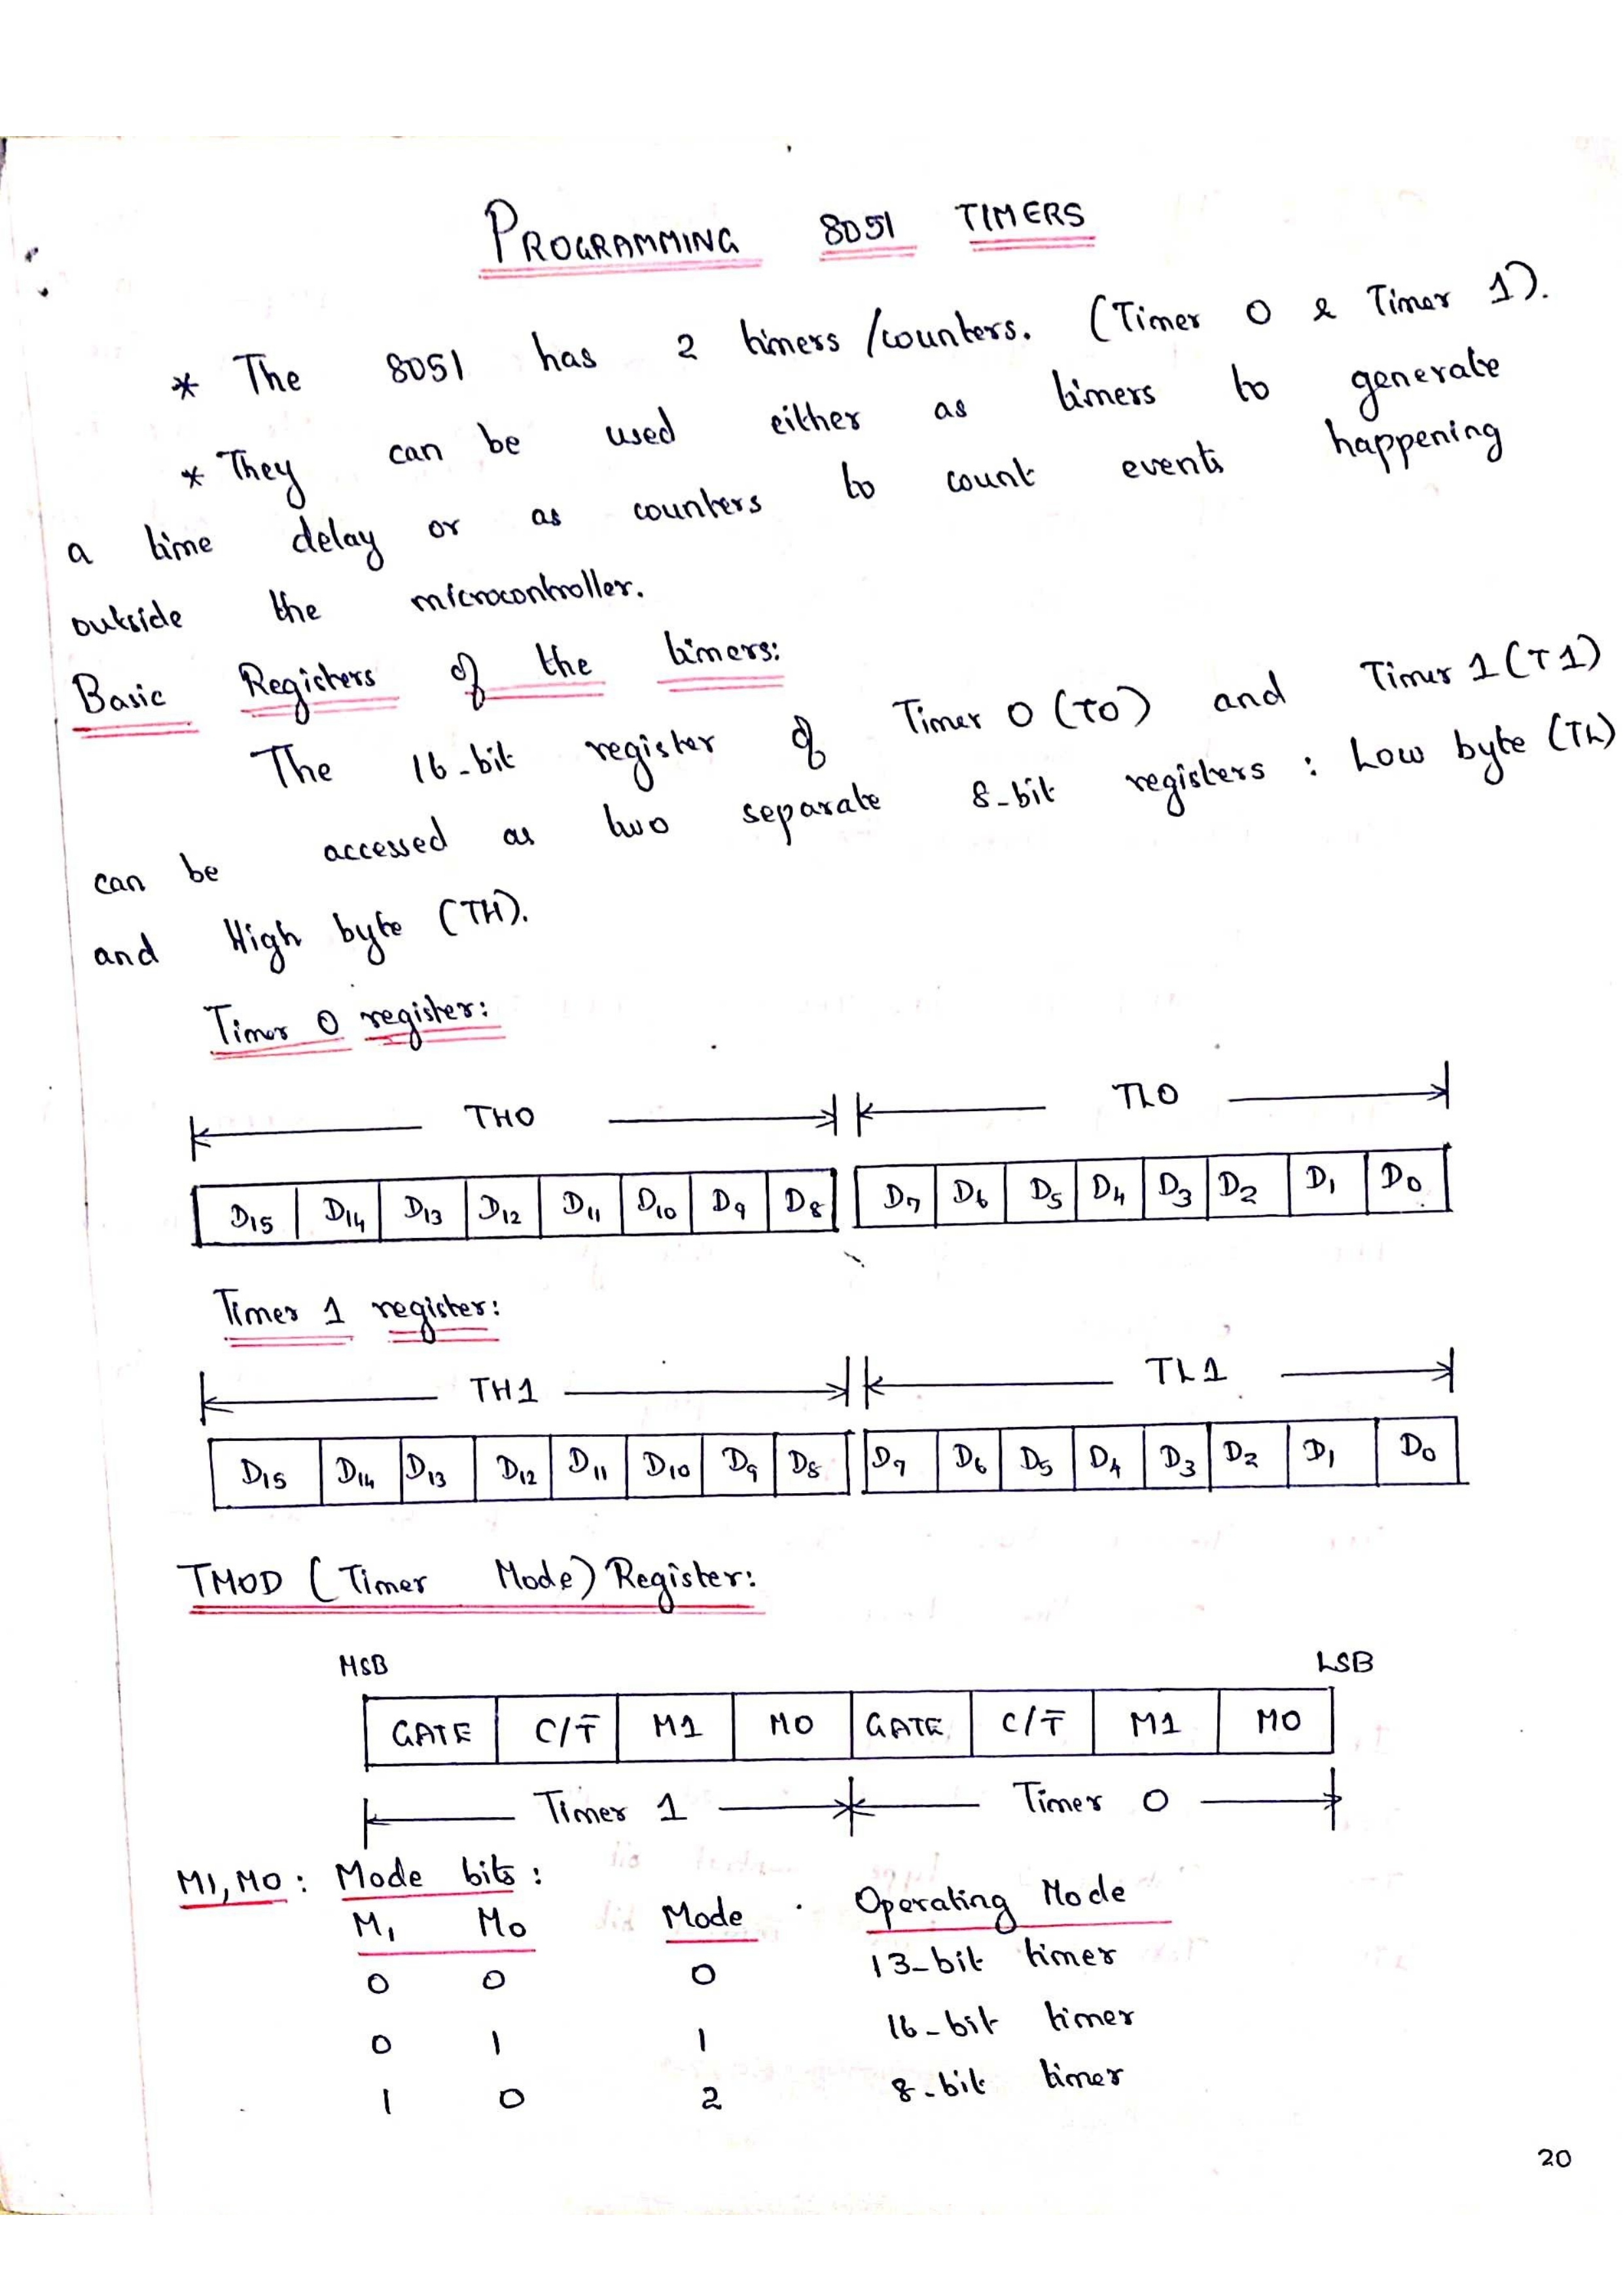 PROGRAMMING 8051 TIMERS
* The 8051 has 2 timers/counters. (Timer 0 & Timer 1).
* They can be used either as timers to generate
a time delay or as counters to count events happening
outside the microcontroller.
Basic Registers of the timers:
The 16-bit register of Timer 0 (T0) and Timer 1 (T1)
can be accessed as two separate 8-bit registers : Low byte (TL)
and High byte (TH).
Timer 0 register:
TH0 TL0
D15 D14 D13 D12 D11 D10 D9 D8 D7 D6 D5 D4 D3 D2 D1 D0
Timer 1 register:
TH1 TL1
D15 D14 D13 D12 D11 D10 D9 D8 D7 D6 D5 D4 D3 D2 D1 D0
TMOD (Timer Mode) Register:
MSB LSB
GATE C/T̅ M1 M0 GATE C/T̅ M1 M0
Timer 1 Timer 0
M1, M0 : Mode bits :
M1 M0 Mode Operating Mode
0 0 0 13-bit timer
0 1 1 16-bit timer
1 0 2 8-bit timer
20